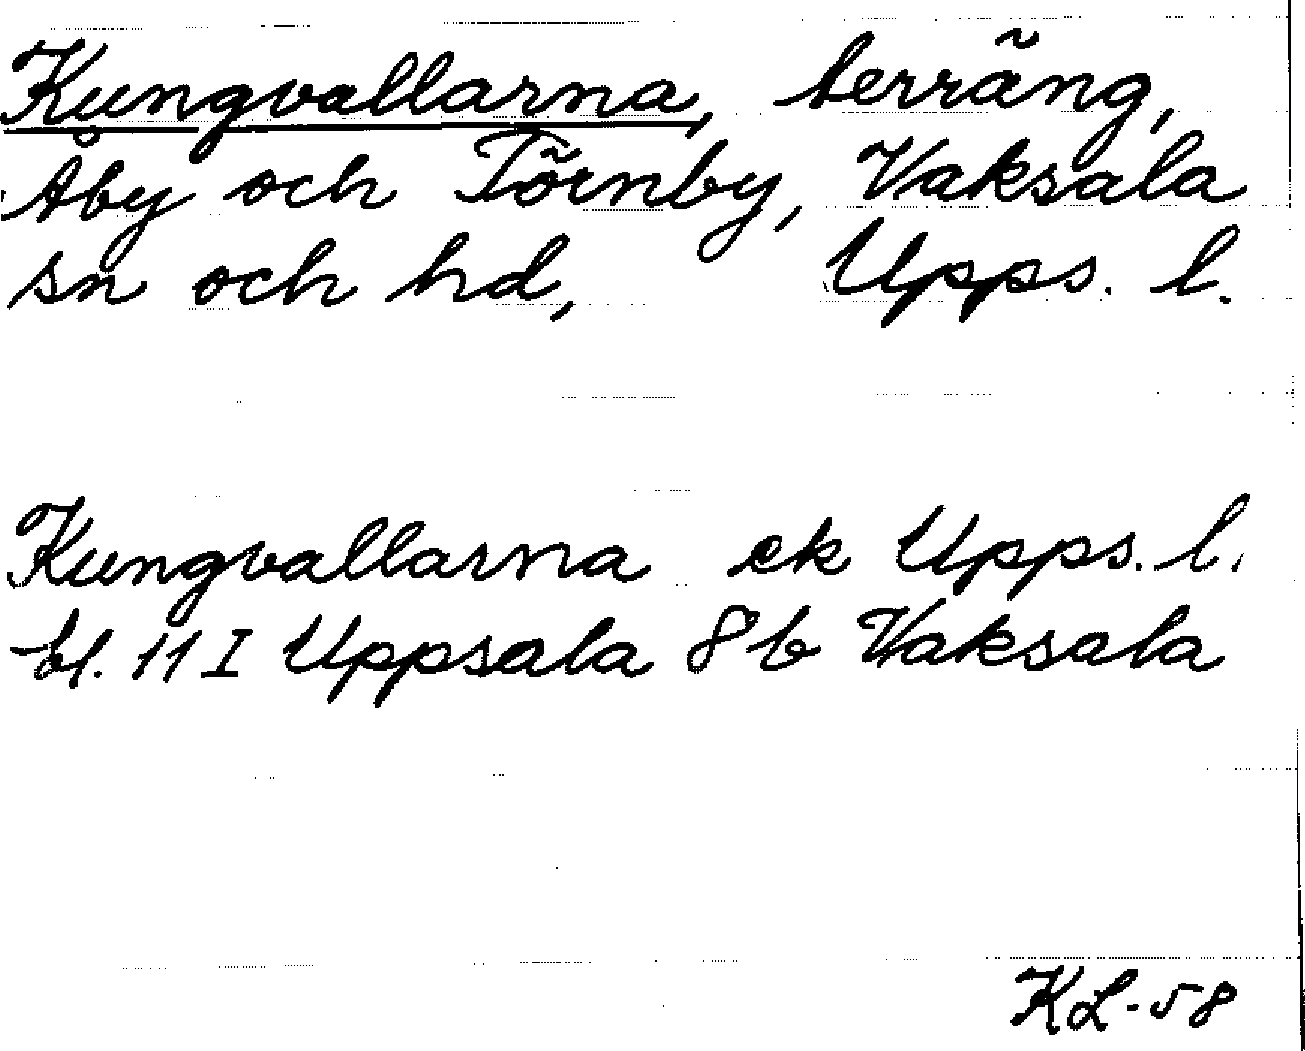 Kungvallarna, terräng,
Åby och Törnby, Vaksala
sn och hd, Upps. l.
Kungvallarna ek Upps. l.
bl. 11 I Uppsala 8 b Vaksala
KL-58